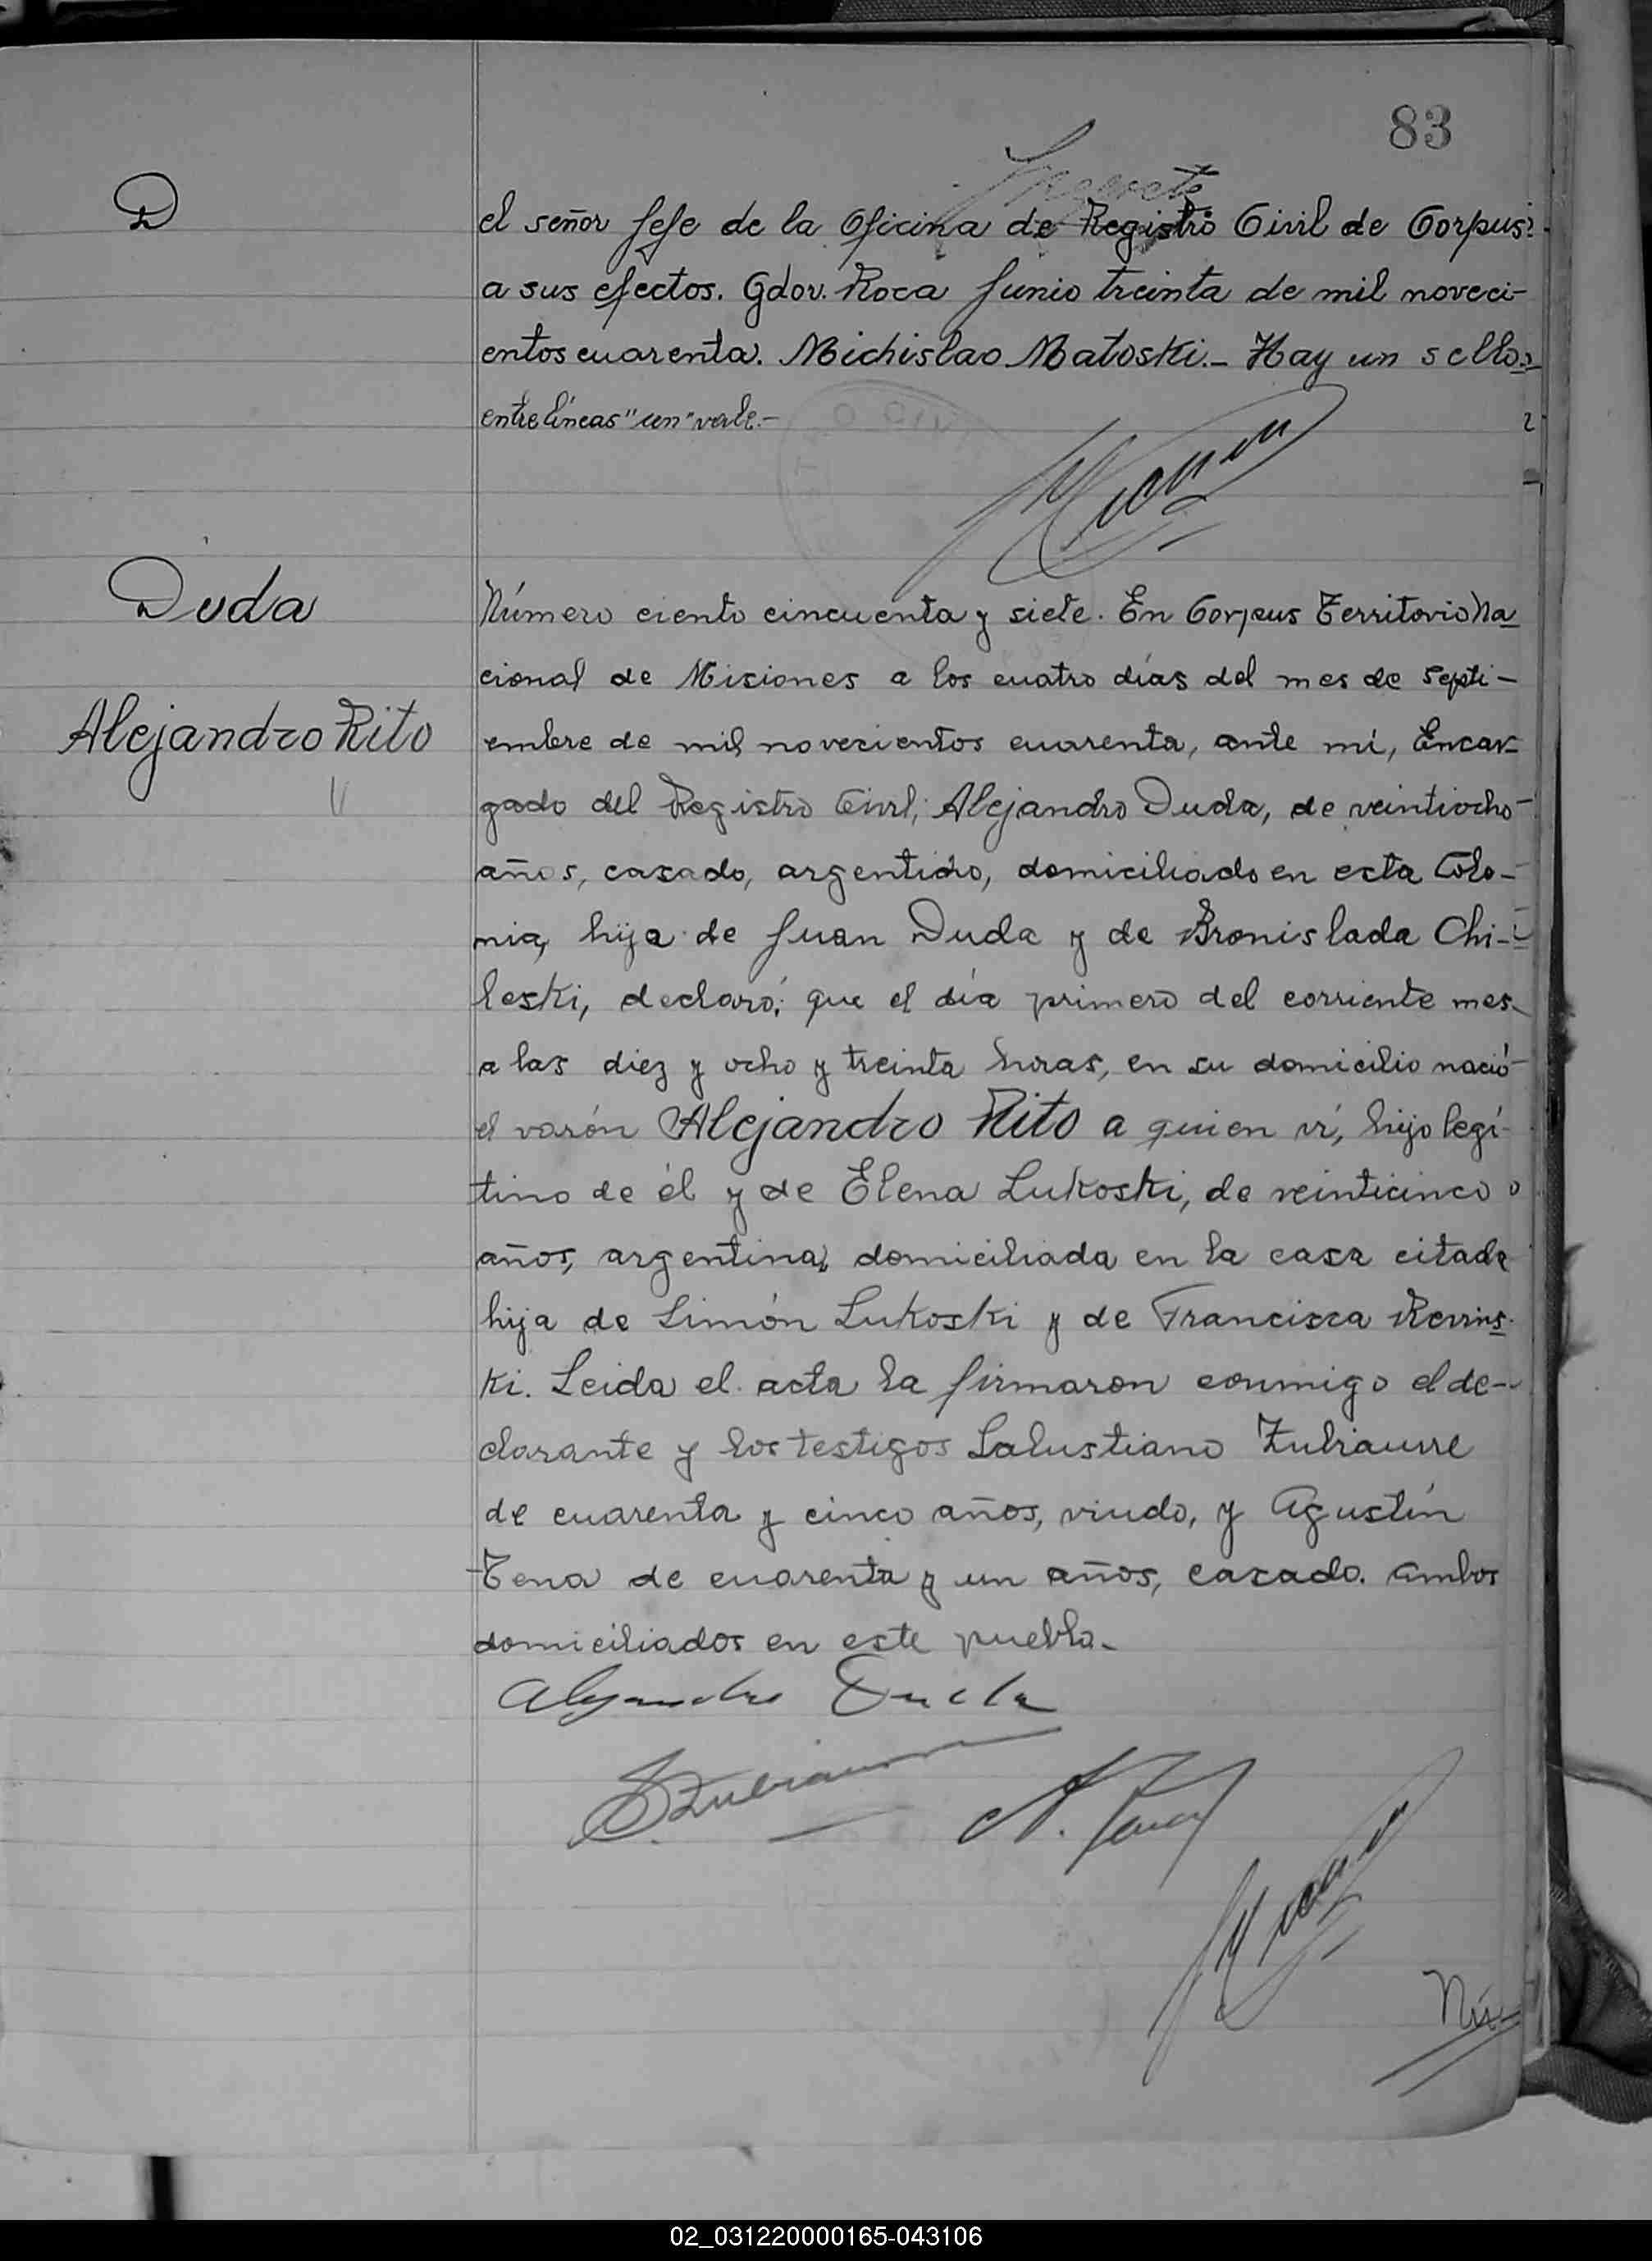 83
D
el señor Jefe de la Oficina de Registro Civil de Corpus
a sus efectos. Gdor. Roca Junio treinta de mil noveci-
entos cuarenta. Michislao Matoski.- Hay un sello.
entre líneas "un" vale.-
Duda
Alejandro Rito
Número ciento cincuenta y siete. En Corpus Territorio Na
cional de Misiones a los cuatro días del mes de Septi-
embre de mil novecientos cuarenta, ante mí, Encar-
gado del Registro Civil; Alejandro Duda, de veintiocho-
años, casado, argentino, domiciliado en esta Colo-
nia, hija de Juan Duda y de Bronislada Chi-
leski, declaró: que el día primero del corriente mes
a las diez y ocho y treinta horas, en su domicilio nació
el varón Alejandro Rito a quien ví, hijo legí-
timo de él y de Elena Lukoski, de veinticinco
años, argentina, domiciliada en la casa citada
hija de Simón Lukoski y de Francisca Revins-
ki. Leida el acta la firmaron conmigo el de-
clarante y los testigos Salustiano Zubiaurre
de cuarenta y cinco años, viudo, y Agustín
Tena de cuarenta y un años, casado. ambos
domiciliados en este pueblo.-
Alejandro Duda
S. Zubiaurre
A. Tena
Nú-
02_031220000165-043106